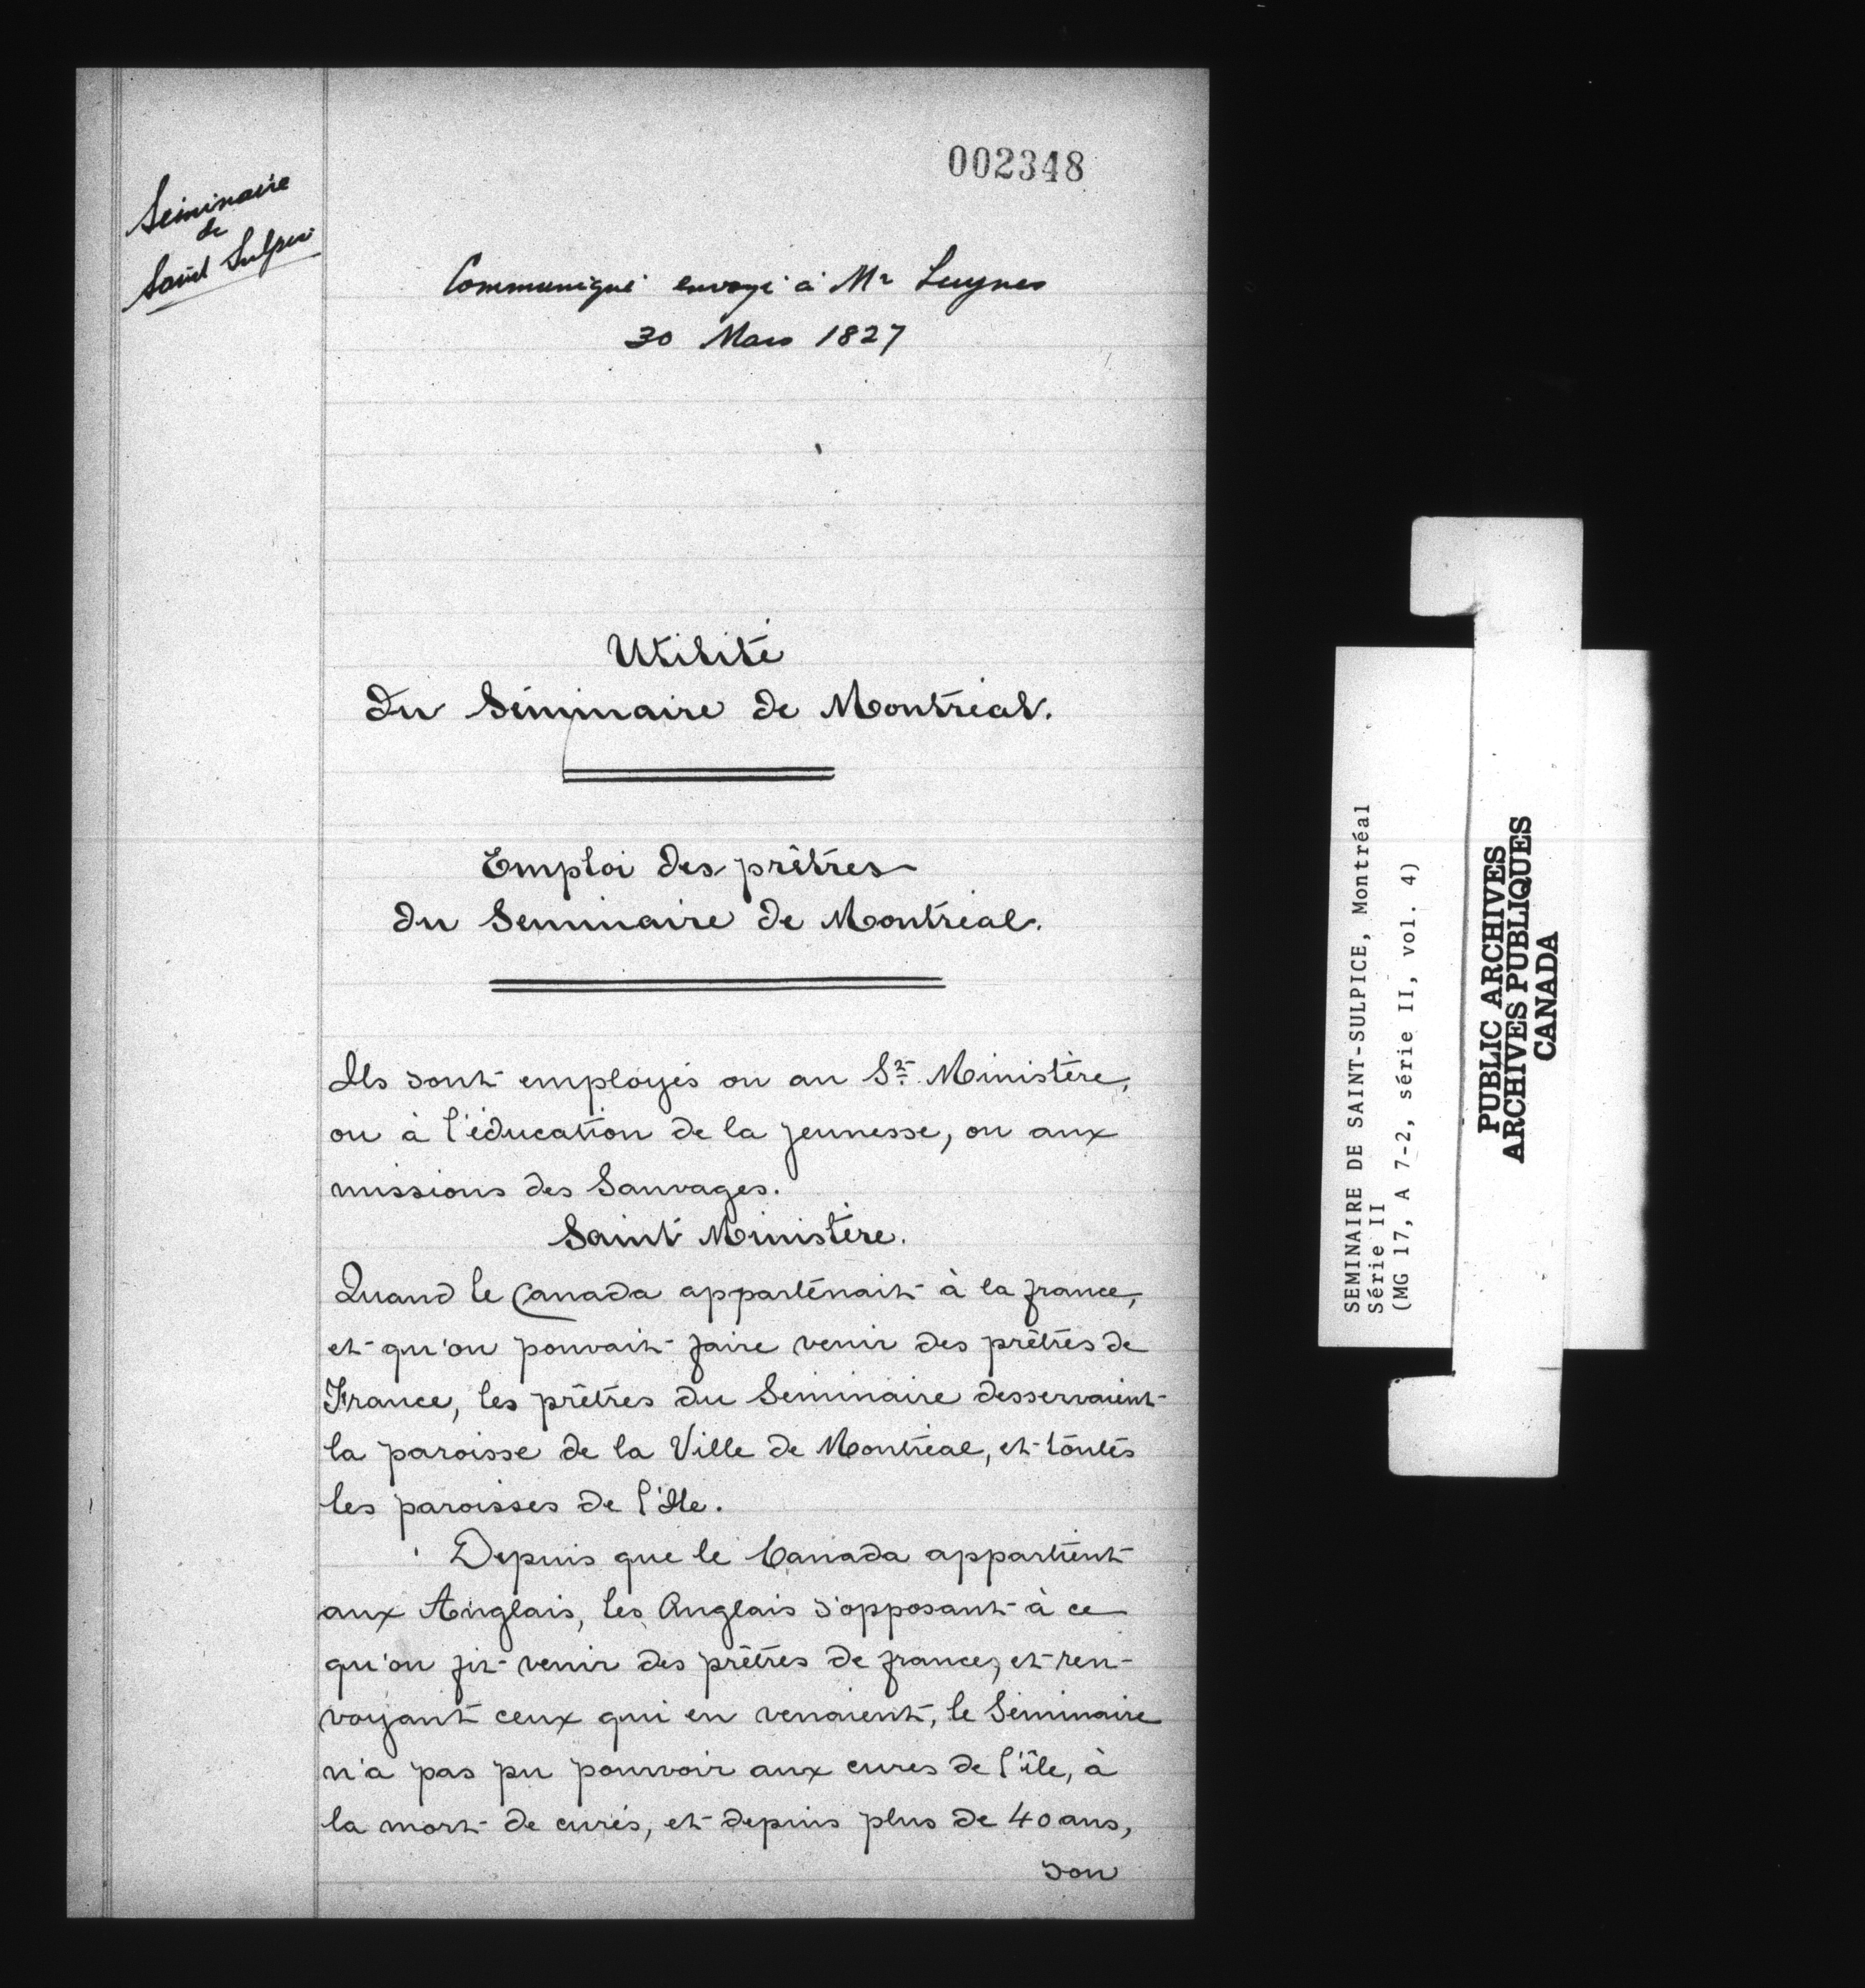 002348
Séminaire
de
Saint Sulpice
Communiqué envoyé à Mr Luynes
30 Mars 1827
Utilité
du Séminaire de Montréal.
Emploi des prêtres
du Seminaire de Montréal.
Ils sont employés ou au St. Ministère,
ou à l'éducation de la jeunesse, ou aux
missions des Sauvages.
Saint Ministère.
Quand le Canada appartenait à la france,
et qu'on pouvait faire venir des prêtres de
France, les prêtres du Seminaire desservaient
la paroisse de la Ville de Montréal, et toutes
les paroisses de l'Ile.
Depuis que le Canada appartient
aux Anglais, les Anglais s'opposant à ce
qu'on fit venir des prêtres de france, et ren-
voyant ceux qui en venaient, le Séminaire
n'a pas pu pourvoir aux cures de l'île, à
la mort de curés, et depuis plus de 40 ans,
son
SEMINAIRE DE SAINT-SULPICE, Montréal
Série II
(MG 17, A 7-2, série II, vol. 4)
PUBLIC ARCHIVES
ARCHIVES PUBLIQUES
CANADA